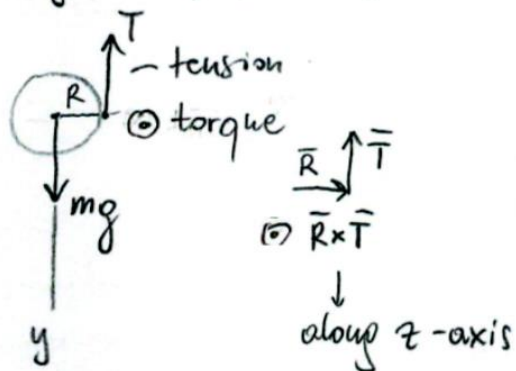 T
– tension
R
⊙ torque
R̄
T̄
mg
⊙ R̄×T̄
↓
along z-axis
y